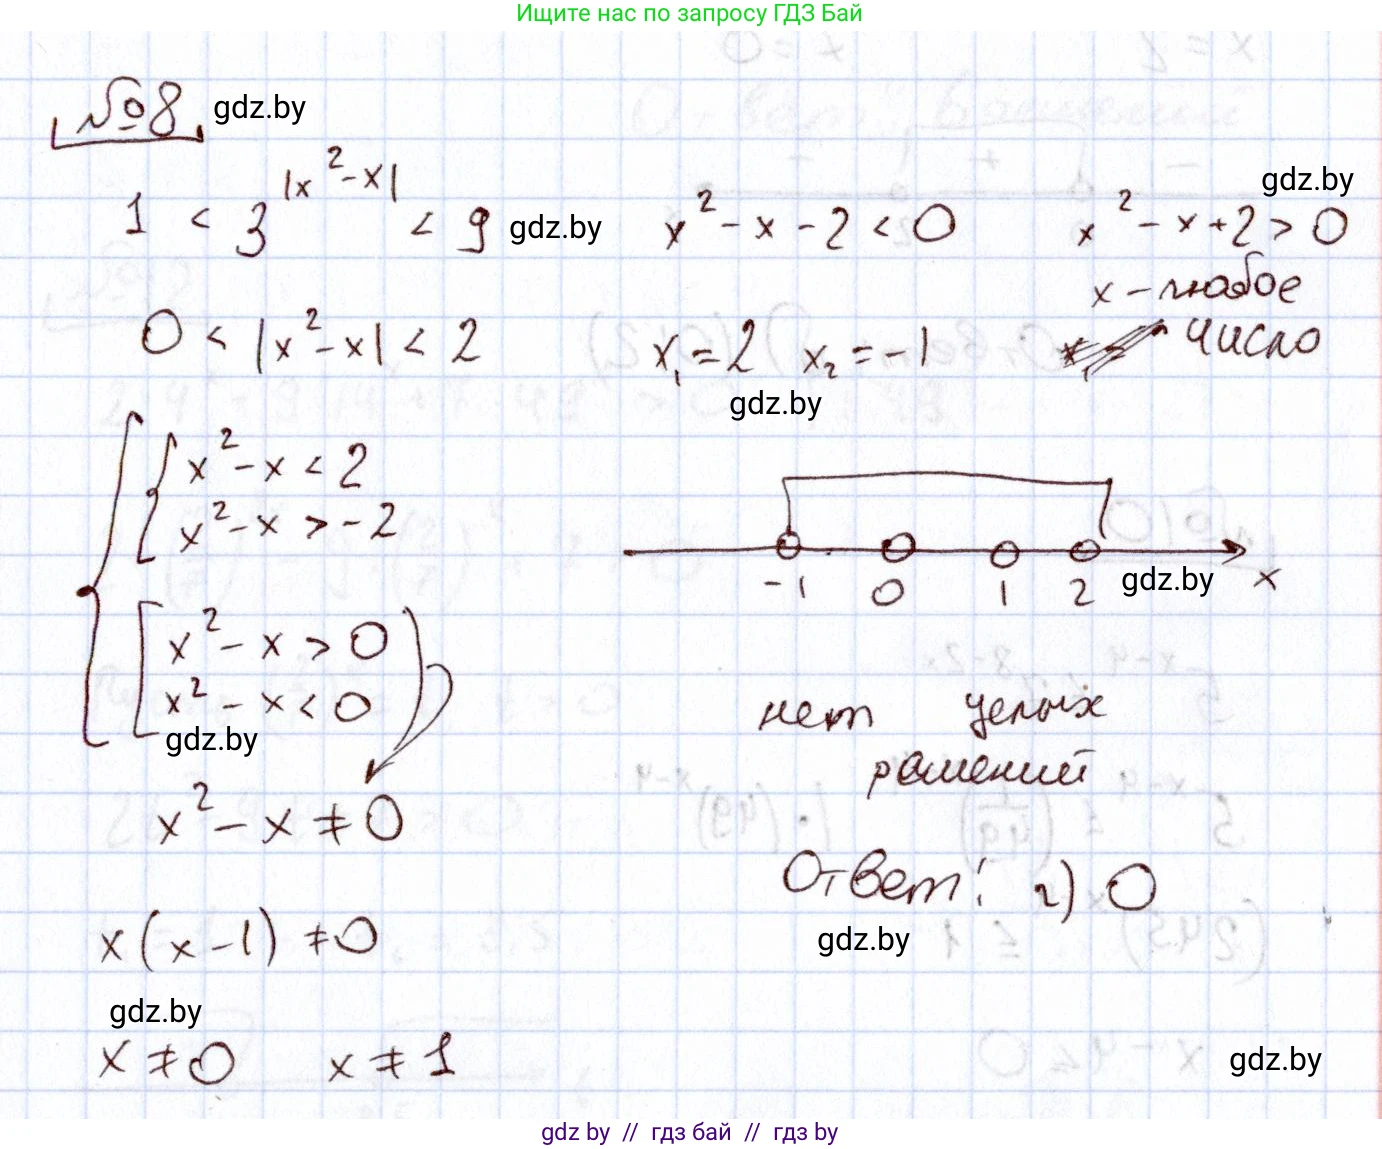 Ищите нас по запросу ГДЗ Бай
№8 gdz.by
1 < 3^|x²-x| < 9 gdz.by
0 < |x²-x| < 2
x²-x < 2
x²-x > -2
x²-x > 0
x²-x < 0
gdz.by
x²-x ≠ 0
x(x-1) ≠ 0
gdz.by
x ≠ 0 x ≠ 1
x²-x-2 < 0
x₁=2 x₂=-1
gdz.by
gdz.by
x²-x+2 > 0
x - любое
число
-1 0 1 2 gdz.by x
нет целых
решений
Ответ: г) 0
gdz.by
gdz.by
gdz by // гдз бай // гдз by